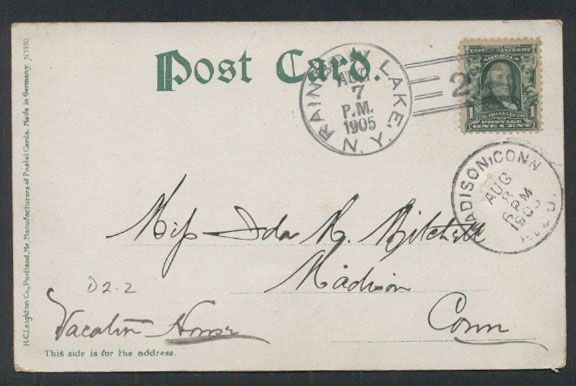 Post Card.
RAINBOW LAKE, N.Y.
AUG
7
P.M.
1905
2
1
POSTAGE
ONE CENT
MADISON, CONN
AUG
8
6 PM
1905
REC'D.
Miss Ida R. Mitchell
Madison
Conn
D2-2
Vacation House
This side is for the address.
H.C. Leighton Co., Portland, Me. Manufacturers of Postal Cards. Made in Germany.